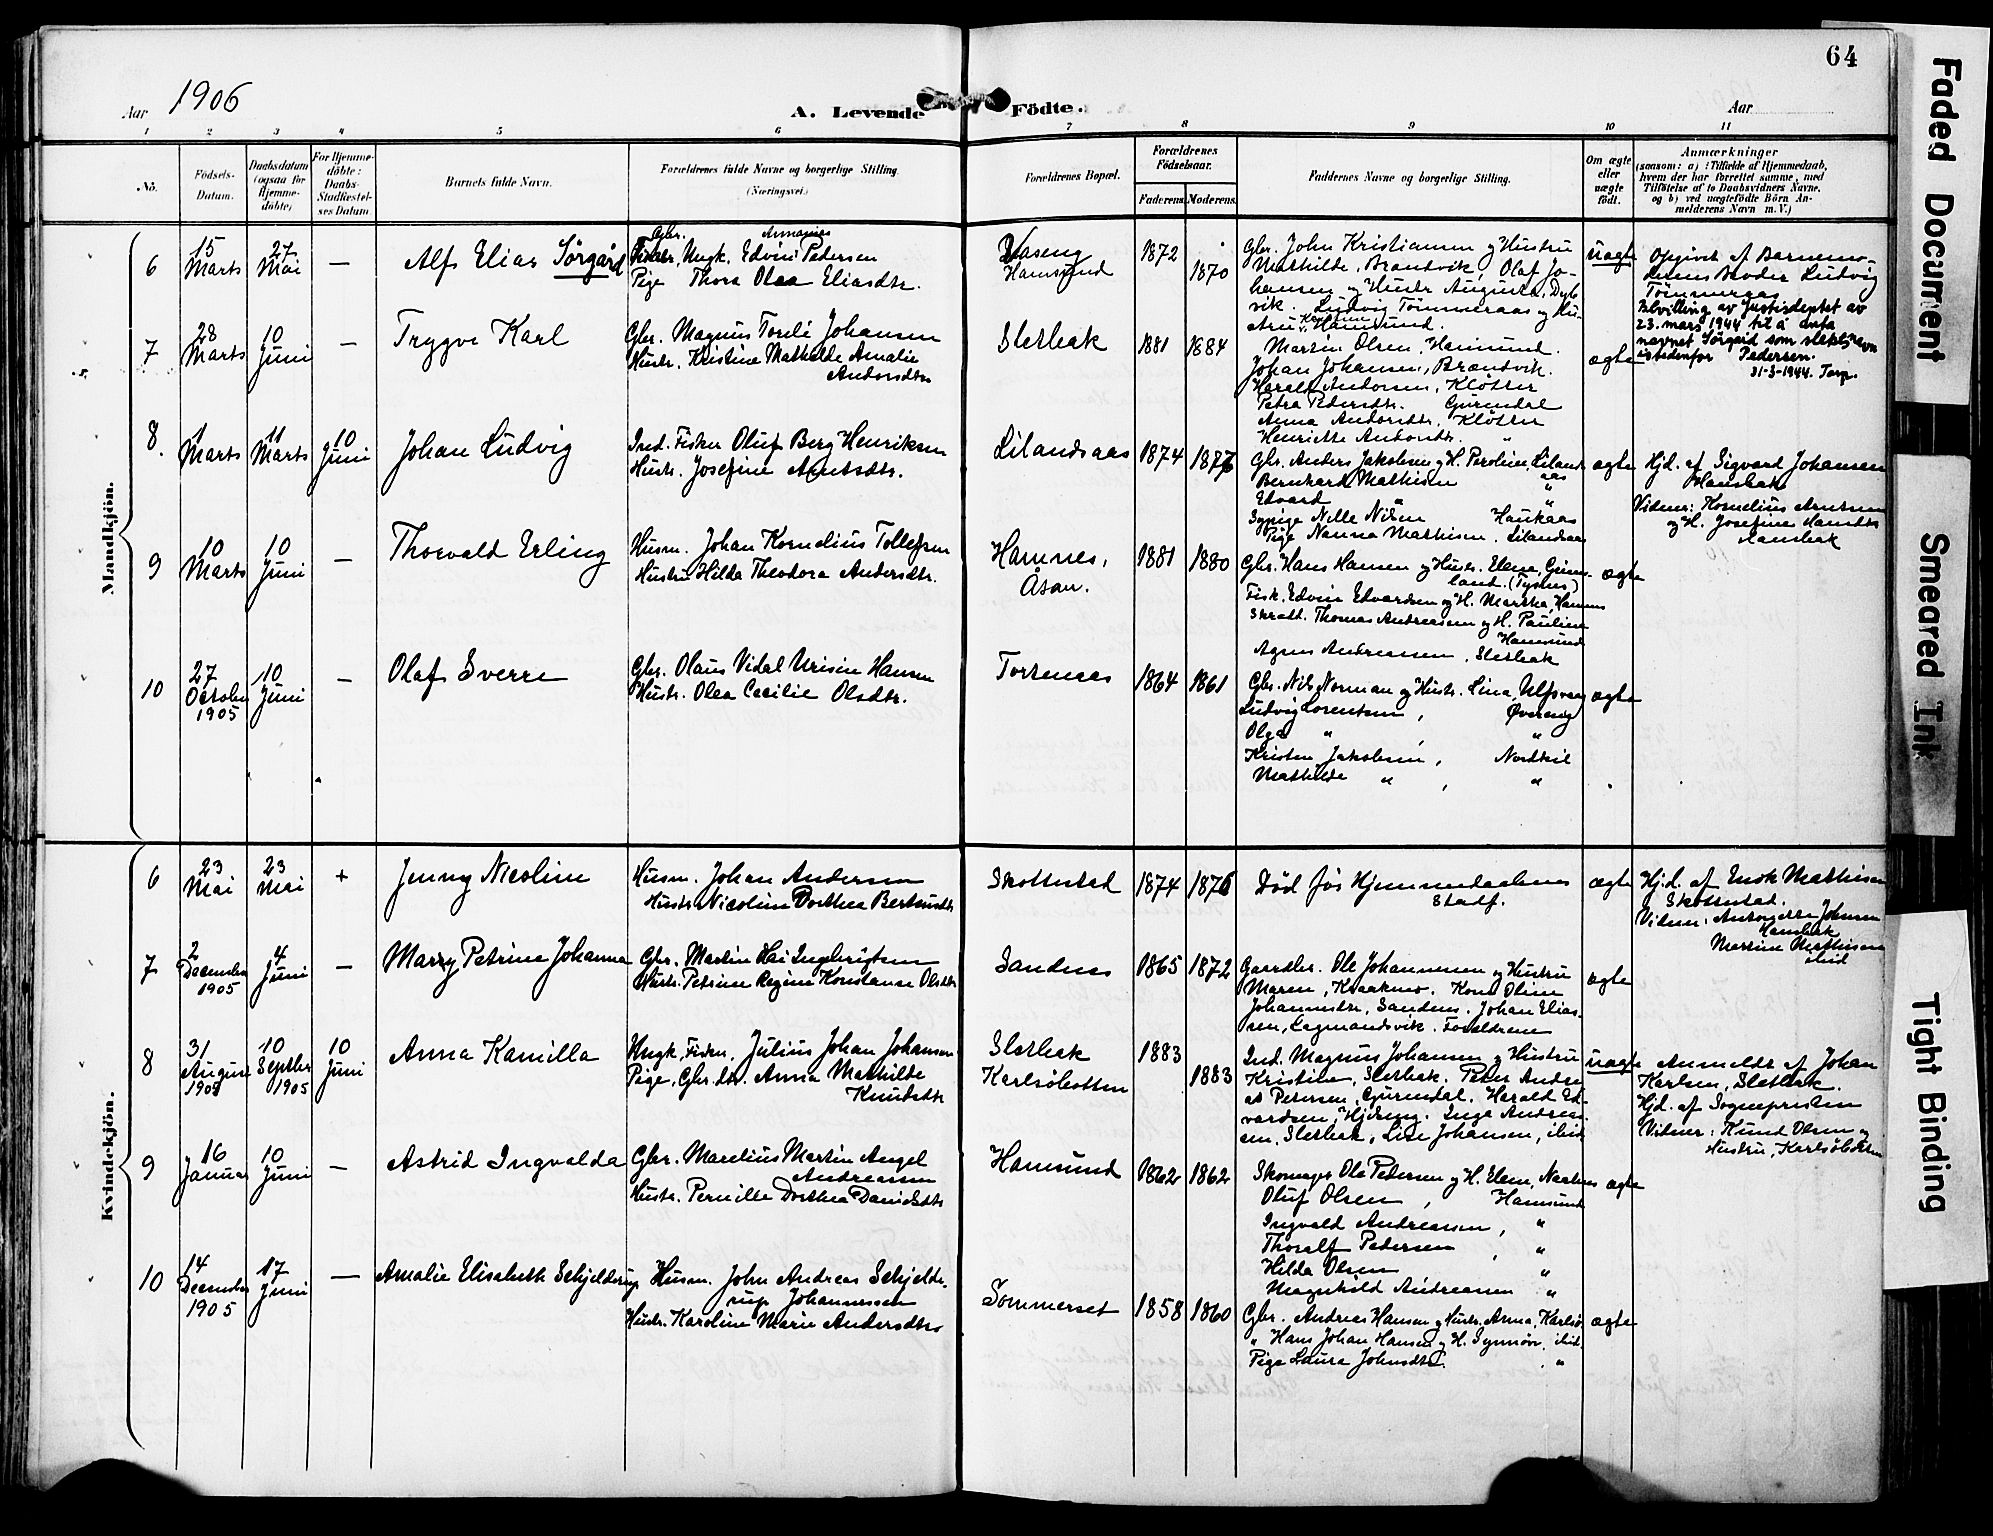 64
Aar 1906
A. Levende Födte.
Aar
1 2 3 4 5 6 7 8 9 10 11
No.
Födsels-Datum.
Daabsdatum (ogsaa for Hjemme-döbte)
For Hjemme-döbte: Daabs-Stadfæstel-ses Datum
Barnets fulde Navn.
Forældrenes fulde Navne og borgerlige Stilling
(Næringsvei.)
Forældrenes Bopæl.
Forældrenes Födselsaar.
Faderens. Moderens.
Faddernes Navne og borgerlige Stilling.
Om ægte eller uægte födt.
Anmærkninger
(saasom: a) i Tilfælde af Hjemmedaab,
hvem der har forrettet samme, med
Tilföielse af to Daabsvidners Navne,
og b) ved uægtefödte Börn An-
melderens Navn m. V.)
Mandkjön.
6
15 Marts
27 Mai
—
Alf Elias Sörgård
Gbr. Armanus
Ungk. Edvin Pedersen
Pige Thora Olea Eliasdtr.
Hamsund
1872
1870
Gbr. John Kristiansen og Hustru
Mathilde, Brandvik, Olaf Jo-
hansen og Hustr Augusta, Dyb-
vik. Ludvig Tömmeraas og Hu-
stru Hamsund.
uægte
Opgivet af Barnemo-
derens Broder Ludvig
Tömmeraas
Bevilling av Justisdeptet av
23. mars 1944 til å anta
navnet Sörgård som slektsnavn
istedenfor Pedersen.
31-3-1944. Torp.
7
28 Marts
10 Juni
—
Trygve Karl
Gbr. Magnus Torele Johansen
Hustr. Kristine Mathilde Amalie
Andorsdtr
Sletbak
1881
1884
Martin Olsen, Hamsund.
Johan Johansen, Brandvik.
Harald Andorsen, Kløtter
Petra Pedersdtr. Gurendal
Anna Andorsdtr, Kløtter
Henriette Andorsdtr. "
ægte
8.
1 Marts
11 Marts
10 Juni
Johan Ludvig
Ind. Fisker Oluf Berg Henriksen
Hustr. Josefine Arntsdtr.
Lilandsaas
1874
1877
Gbr. Anders Jakobsen og H. Peroline, Lilands
aas
Bernhard Mathisen "
Edvard " "
Sypige Nelle Nilsen Haukaas
Pige Nanna Mathisen, Lilandsaas
ægte
Hjd. af Sigvard Johansen
Hansbak
Vidner: Kornelius Arntsen
og H. Josefine Hansdtr
Hansbak
9
10 Marts
10 Juni
—
Thorvald Erling
Husm. Johan Kornelius Tollefsen
Hustru Hilda Theodora Andersdtr.
Hamnes,
Åsan.
1881
1880
Gbr. Hans Hansen og Hustr. Elena, Grim-
land (Tysnes)
Fisk. Edvin Edvardsen og H. Martha, Hamnes
Skrædt. Thomas Andreassen og H. Pauline
Hamsund
Agnes Andreassen, Sletbak
ægte
10
27 October 1905
10 Juni
—
Olaf Sverre
Gbr. Olaus Vidal Urisin Hansen
Hustr. Olea Cecilie Olsdtr.
Tortenæs
1864
1861
Gbr. Nils Norman og Hustr. Lina, Ulfsvaag
Ludvig Lorentsen, Øvereng
Olga " , "
Kristen Jakobsen, Nordkil
Mathilde " , "
ægte
Kvindekjön.
6
23 Mai
23 Mai
+
Jenny Nicoline
Husm. Johan Andersen
Hustr Nicoline Dorthea Berteusdtr
Skottestad
1874
1876
Död før Hjemmedaabens
Stadf.
ægte
Hjd. af Enok Mathisen
Skottestad.
Vidner: Antonette Johnsen
Hansbak
Martine Mathisen
ibid
7
2 December 1905
4 Juni
—
Marry Petrine Johanna
Gbr. Martin Hai Ingebrigtsen
Hustr. Petrine Regine Konstanse Olsdtr
Sandnes
1865
1872
Gaardbr. Ole Johannesen og Hustru
Maren, Kraakmo. Kone Oline
Johannesdtr, Sandnes. Johan Elias-
sen, Lagmandsvik. Forældrene
ægte
8
31 August 1905
10 Septbr 1905
10 Juni
Anna Kamilla
Ungk, Fisker, Julius Johan Johansen
Pige, Gbr. dtr. Anna Mathilde
Knudsdtr
Sletbak
Karlsöbotten
1883
1883
Ind. Magnus Johansen og Hustru
Kristine, Sletbak. Peter Andre-
as Petersen, Gurendal. Harald Ed-
vardsen, Hjelseng. Inga Andreas-
sen, Sletbak, Lise Johansen, ibid
uægte
Anmeldt af Johan
Karlsen, Sletbak.
Hjd. af Sognepresten
Vidner: Knud Olsen og
Hustru, Karlsöbotten
9
16 Januar
10 Juni
—
Astrid Ingvalda
Gbr. Marelius Martin Angel
Andreassen
Hustr. Pernille Dorthea Danielsdtr
Hamsund
1862
1862
Skomager Ole Pedersen og H. Elen, Naatnes
Oluf Olsen, Hamsund
Ingvald Andreassen, "
Thoralf Pedersen , "
Hilda Olsen "
Magnhild Andreassen "
ægte
10
14 December 1905
17 Juni
—
Amalie Elisabeth Schjelderup
Husm. John Andreas Schjelde-
rup Johannessen
Hustr. Karoline Marie Andersdtr
Sommerset
1858
1860
Gbr. Andreas Hansen og Hustr. Anna, Karlsö
" Hans Johan Hansen og H. Synnöv, ibid.
Pige Laura Johnsdtr. , "
ægte
Faded Document
Smeared Ink
Tight Binding